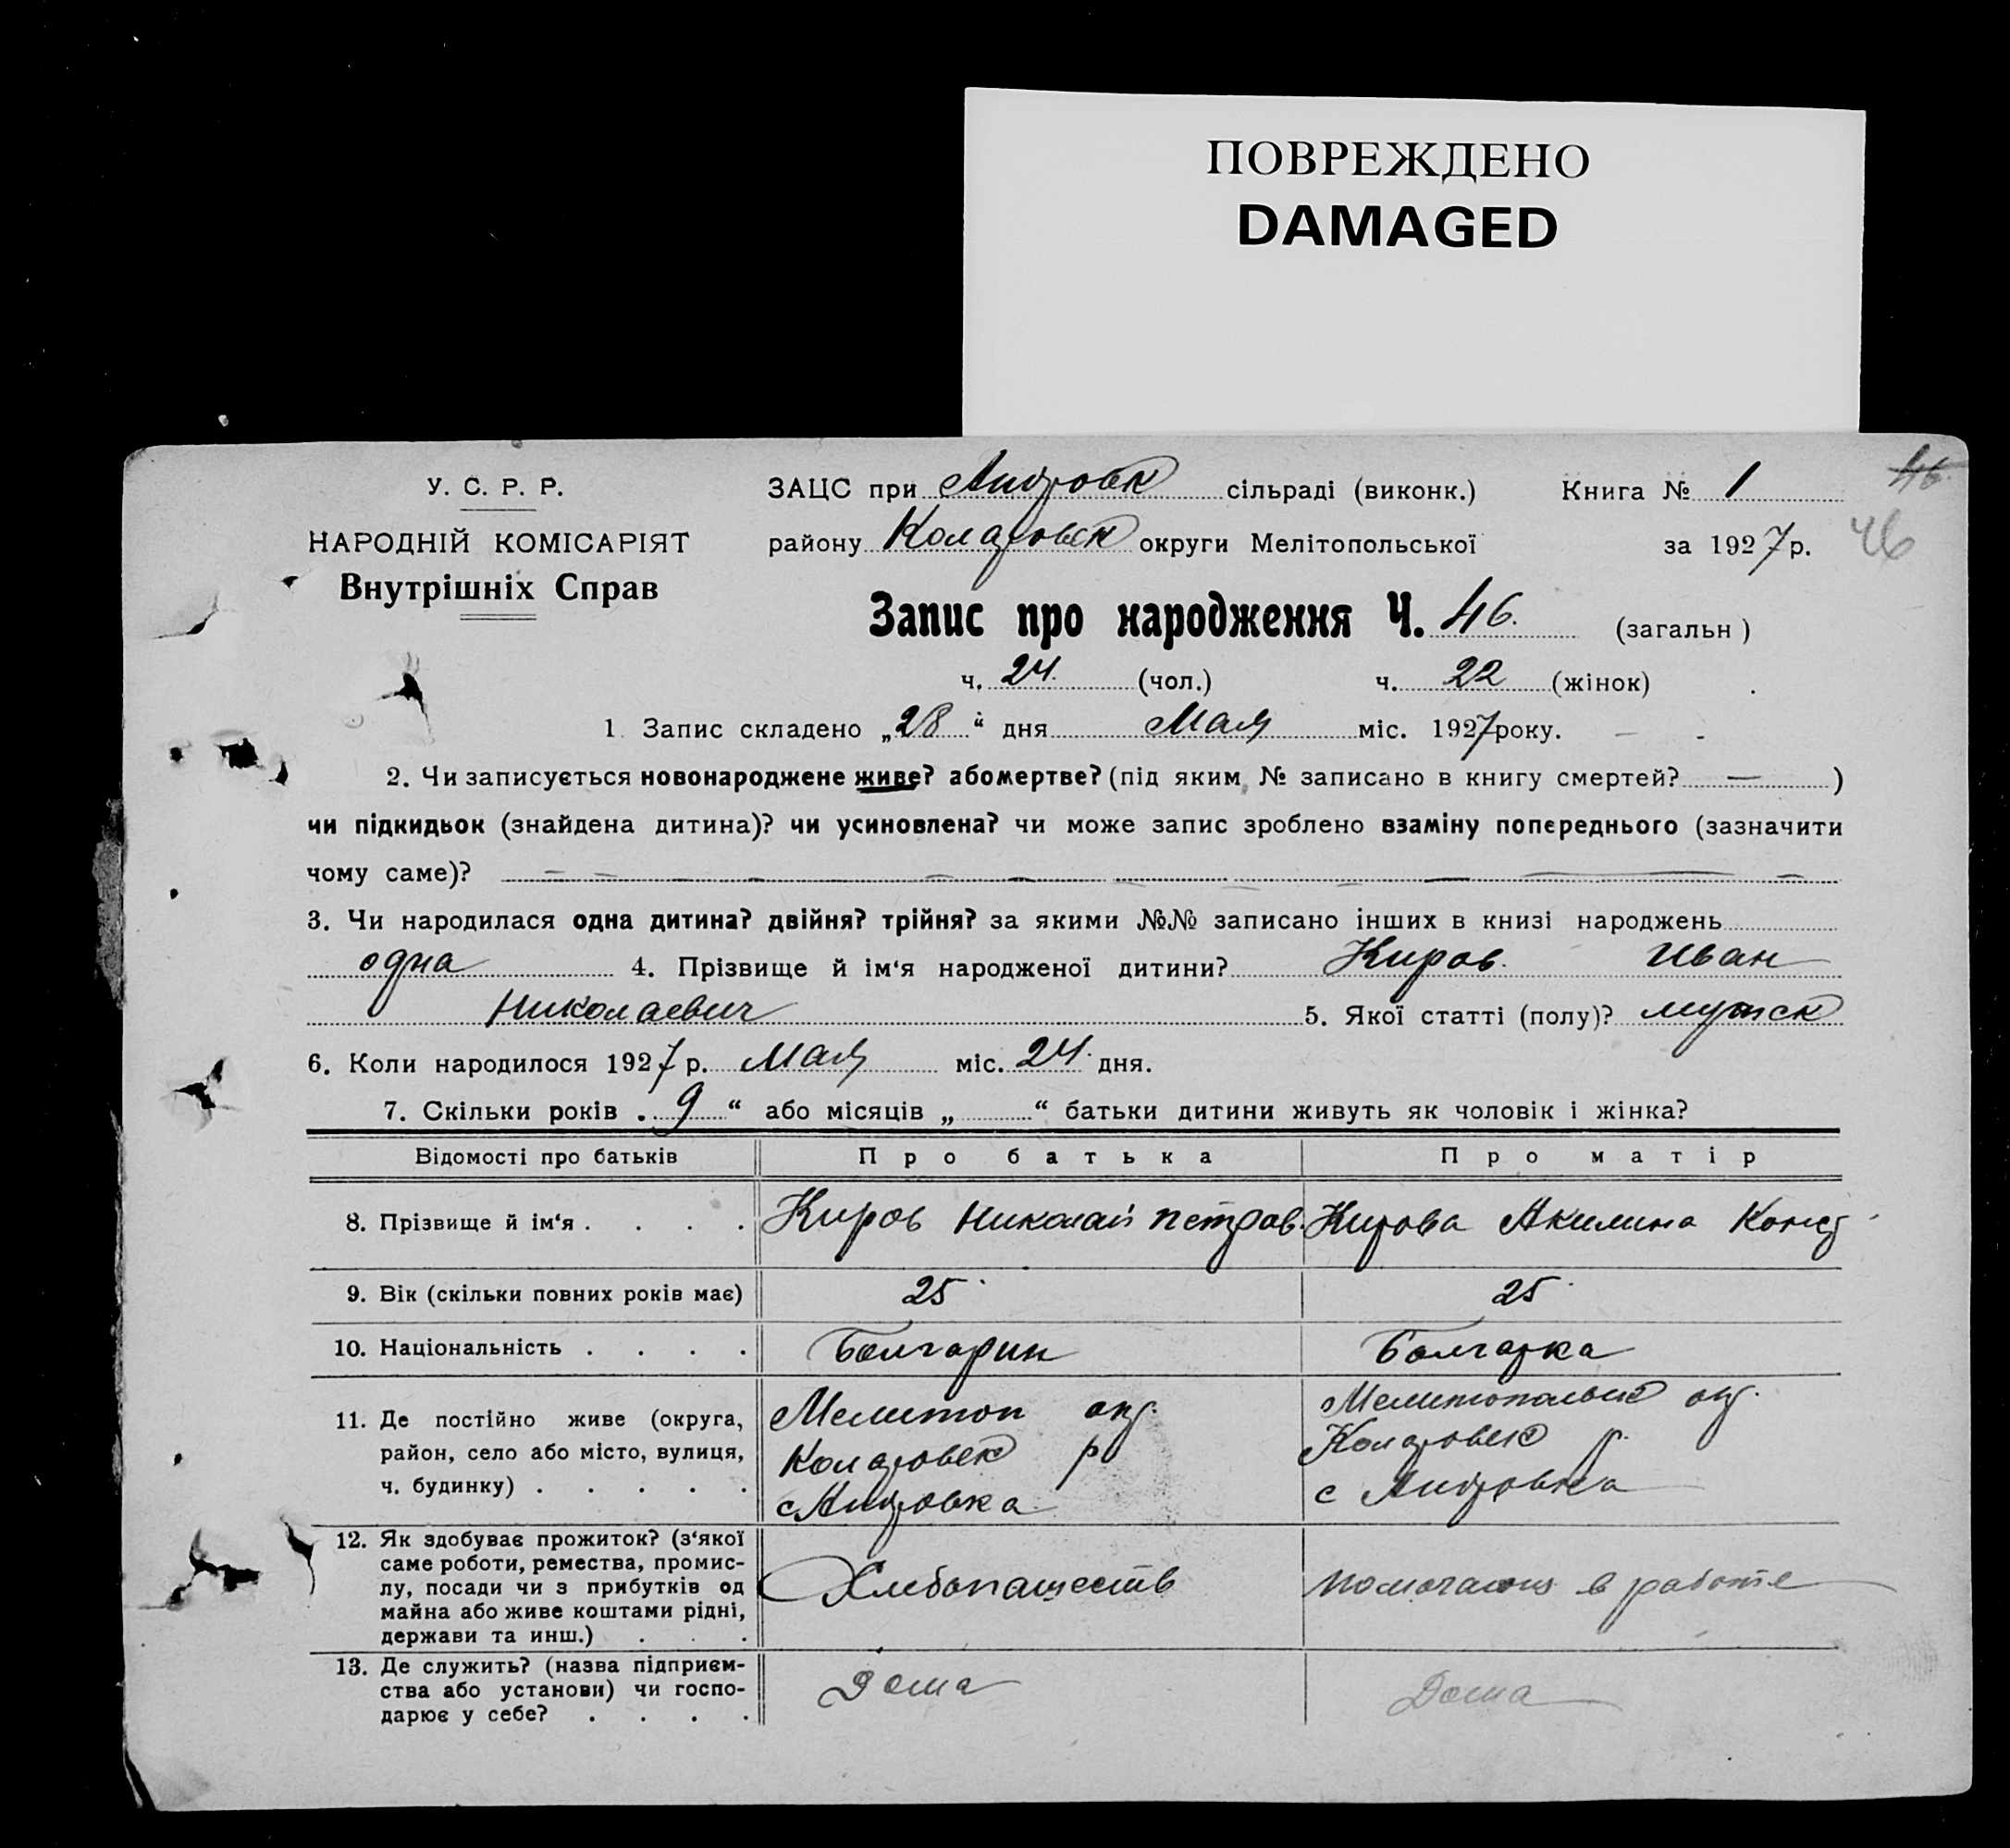 ПОВРЕЖДЕНО
DAMAGED
46
У. С. Р. Р.
ЗАЦС при Андровск сільраді (виконк.) Книга № 1
НАРОДНІЙ КОМІСАРІЯТ
району Коларовск округи Мелітопольської за 1927 р. 46
Внутрішніх Справ
Запис про народження Ч. 46. (загальн)
ч. 24. (чол.) ч. 22 (жінок)
1. Запис складено „28" дня Мая міс. 1927 року.
2. Чи записується новонароджене живе? або мертве? (під яким № записано в книгу смертей? — )
чи підкидьок (знайдена дитина)? чи усиновлена? чи може запис зроблено взаміну попереднього (зазначити
чому саме)?
3. Чи народилася одна дитина? двійня? трійня? за якими №№ записано інших в книзі народжень
одна 4. Прізвище й ім'я народженої дитини? Киров Иван
Николаевич 5. Якої статті (полу)? мужск
6. Коли народилося 1927 р. Мая міс. 24 дня.
7. Скільки років „9“ або місяців „ “ батьки дитини живуть як чоловік і жінка?
Відомості про батьків Про батька Про матір
8. Прізвище й ім'я . . . . Киров Николай Петров. Кирова Акилина Конст
9. Вік (скільки повних років має) 25 25
10. Національність . . . . Болгарин Болгарка
11. Де постійно живе (округа, Мелитоп окр. Мелитопольск окр.
район, село або місто, вулиця, Коларовск р Коларовск р.
ч. будинку) . . . . . с Андровка с Андровка
12. Як здобуває прожиток? (з'якої
саме роботи, ремества, промис-
лу, посади чи з прибутків од Хлебопашеств в работе
майна або живе коштами рідні,
держави та инш.) . . .
13. Де служить? (назва підприєм-
ства або установи) чи госпо- Дома Дома
дарює у себе? . . . .